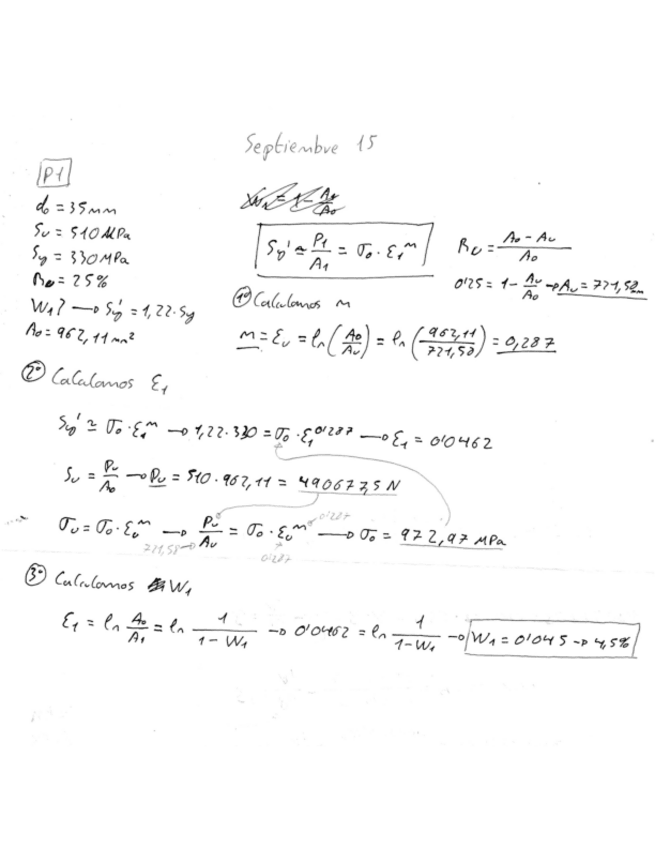 Septiembre 15
P1
d₀ = 35mm
Su = 510 MPa
Sy = 330 MPa
Ru = 25%
W₁? → Sy' = 1,22·Sy
A₀ = 962,11 mm²
Sy' ≃ P₁/A₁ = σ₀·ε₁ᵐ
Ru = (A₀ - Au)/A₀
0'25 = 1 - Au/A₀ → Au = 721,58 mm
1º Calculamos m
m = εu = ln(A₀/Au) = ln(962,11/721,58) = 0,287
2º Calculamos ε₁
Sy' ≃ σ₀·ε₁ᵐ → 1,22·330 = σ₀·ε₁^0'287 → ε₁ = 0'0462
Su = Pu/A₀ → Pu = 510·962,11 = 490677,5 N
σu = σ₀·εuᵐ → Pu/Au = σ₀·εuᵐ → σ₀ = 972,97 MPa
721,58 → 0'287 0'287
3º Calculamos W₁
ε₁ = ln A₀/A₁ = ln 1/(1 - W₁) → 0'0462 = ln 1/(1-W₁) → W₁ = 0'045 → 4,5%